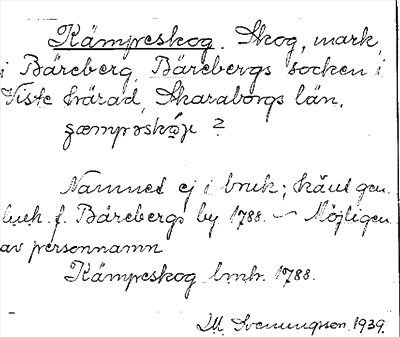 Kämpeskog. Skog, mark,
i Bäreberg, Bärebergs socken i
Viste härad, Skaraborgs län.
?
Namnet ej i bruk; känt gen.
lmh. f. Bärebergs by 1788. – Möjligen
av personnamn
Kämpeskog lmh. 1788.
M. Svenungsson. 1939.